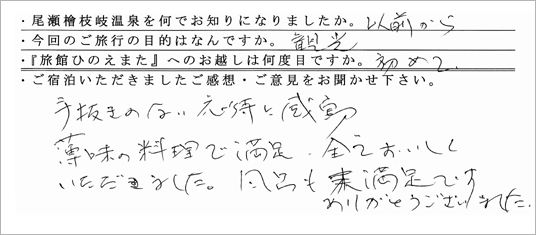 ・尾瀬檜枝岐温泉を何でお知りになりましたか。以前から
・今回のご旅行の目的はなんですか。観光
・『旅館ひのえまた』へのお越しは何度目ですか。初めて
・ご宿泊いただきましたご感想・ご意見をお聞かせ下さい。
手抜きのない応待に感動
薄味の料理で満足、全ておいしく
いただきました。風呂も 満足です
ありがとうございました。